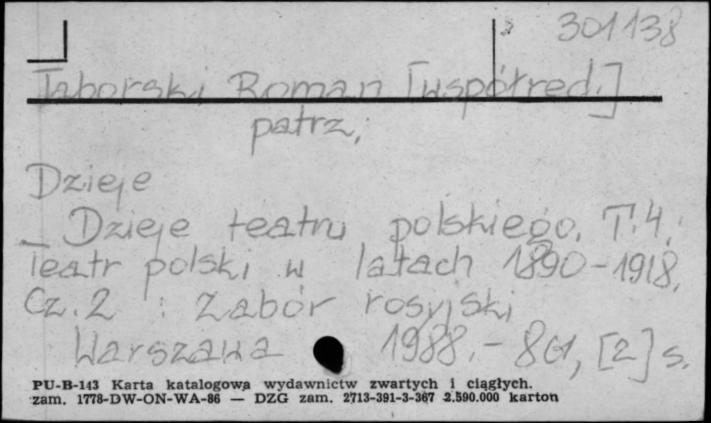 301138
Taborski Roman [współred.]
patrz:
Dzieje
Dzieje teatru polskiego. T. 4.:
Teatr polski w latach 1890-1918.
Cz. 2 : Zabór rosyjski
Warszawa 1988. - 861, [2] s.
PU-B-143 Karta katalogowa wydawnictw zwartych i ciągłych.
zam. 1778-DW-ON-WA-86 — DZG zam. 2713-391-3-367 2.590.000 karton